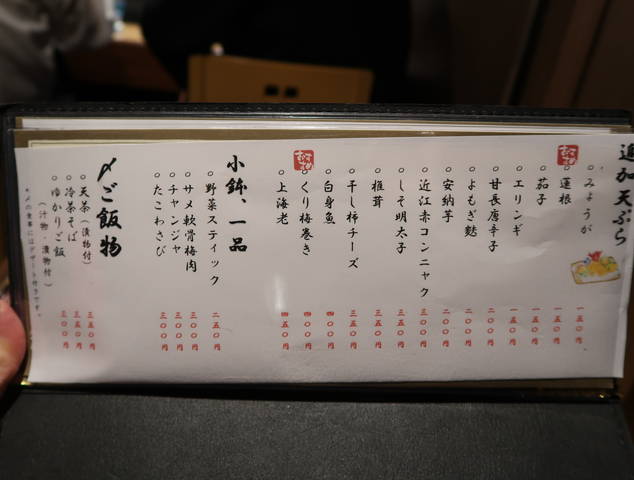 追加天ぷら
○みょうが 一五〇円
おすすめ
○蓮根 一五〇円
○茄子 一五〇円
○エリンギ 一五〇円
○甘長唐辛子 二〇〇円
○よもぎ麩 二〇〇円
○安納芋 二〇〇円
○近江赤コンニャク 三〇〇円
○しそ明太子 三五〇円
○椎茸 三五〇円
○干し柿チーズ 三五〇円
○白身魚 四〇〇円
おすすめ
○くり梅巻き 四〇〇円
○上海老 四五〇円
小鉢、一品
○野菜スティック 二五〇円
○サメ軟骨梅肉 三〇〇円
○チャンジャ 三〇〇円
○たこわさび 三〇〇円
〆ご飯物
○天茶(漬物付) 三五〇円
○冷茶そば 三五〇円
○ゆかりご飯 三〇〇円
(汁物・漬物付)
※〆の食事にはデザート付きです。